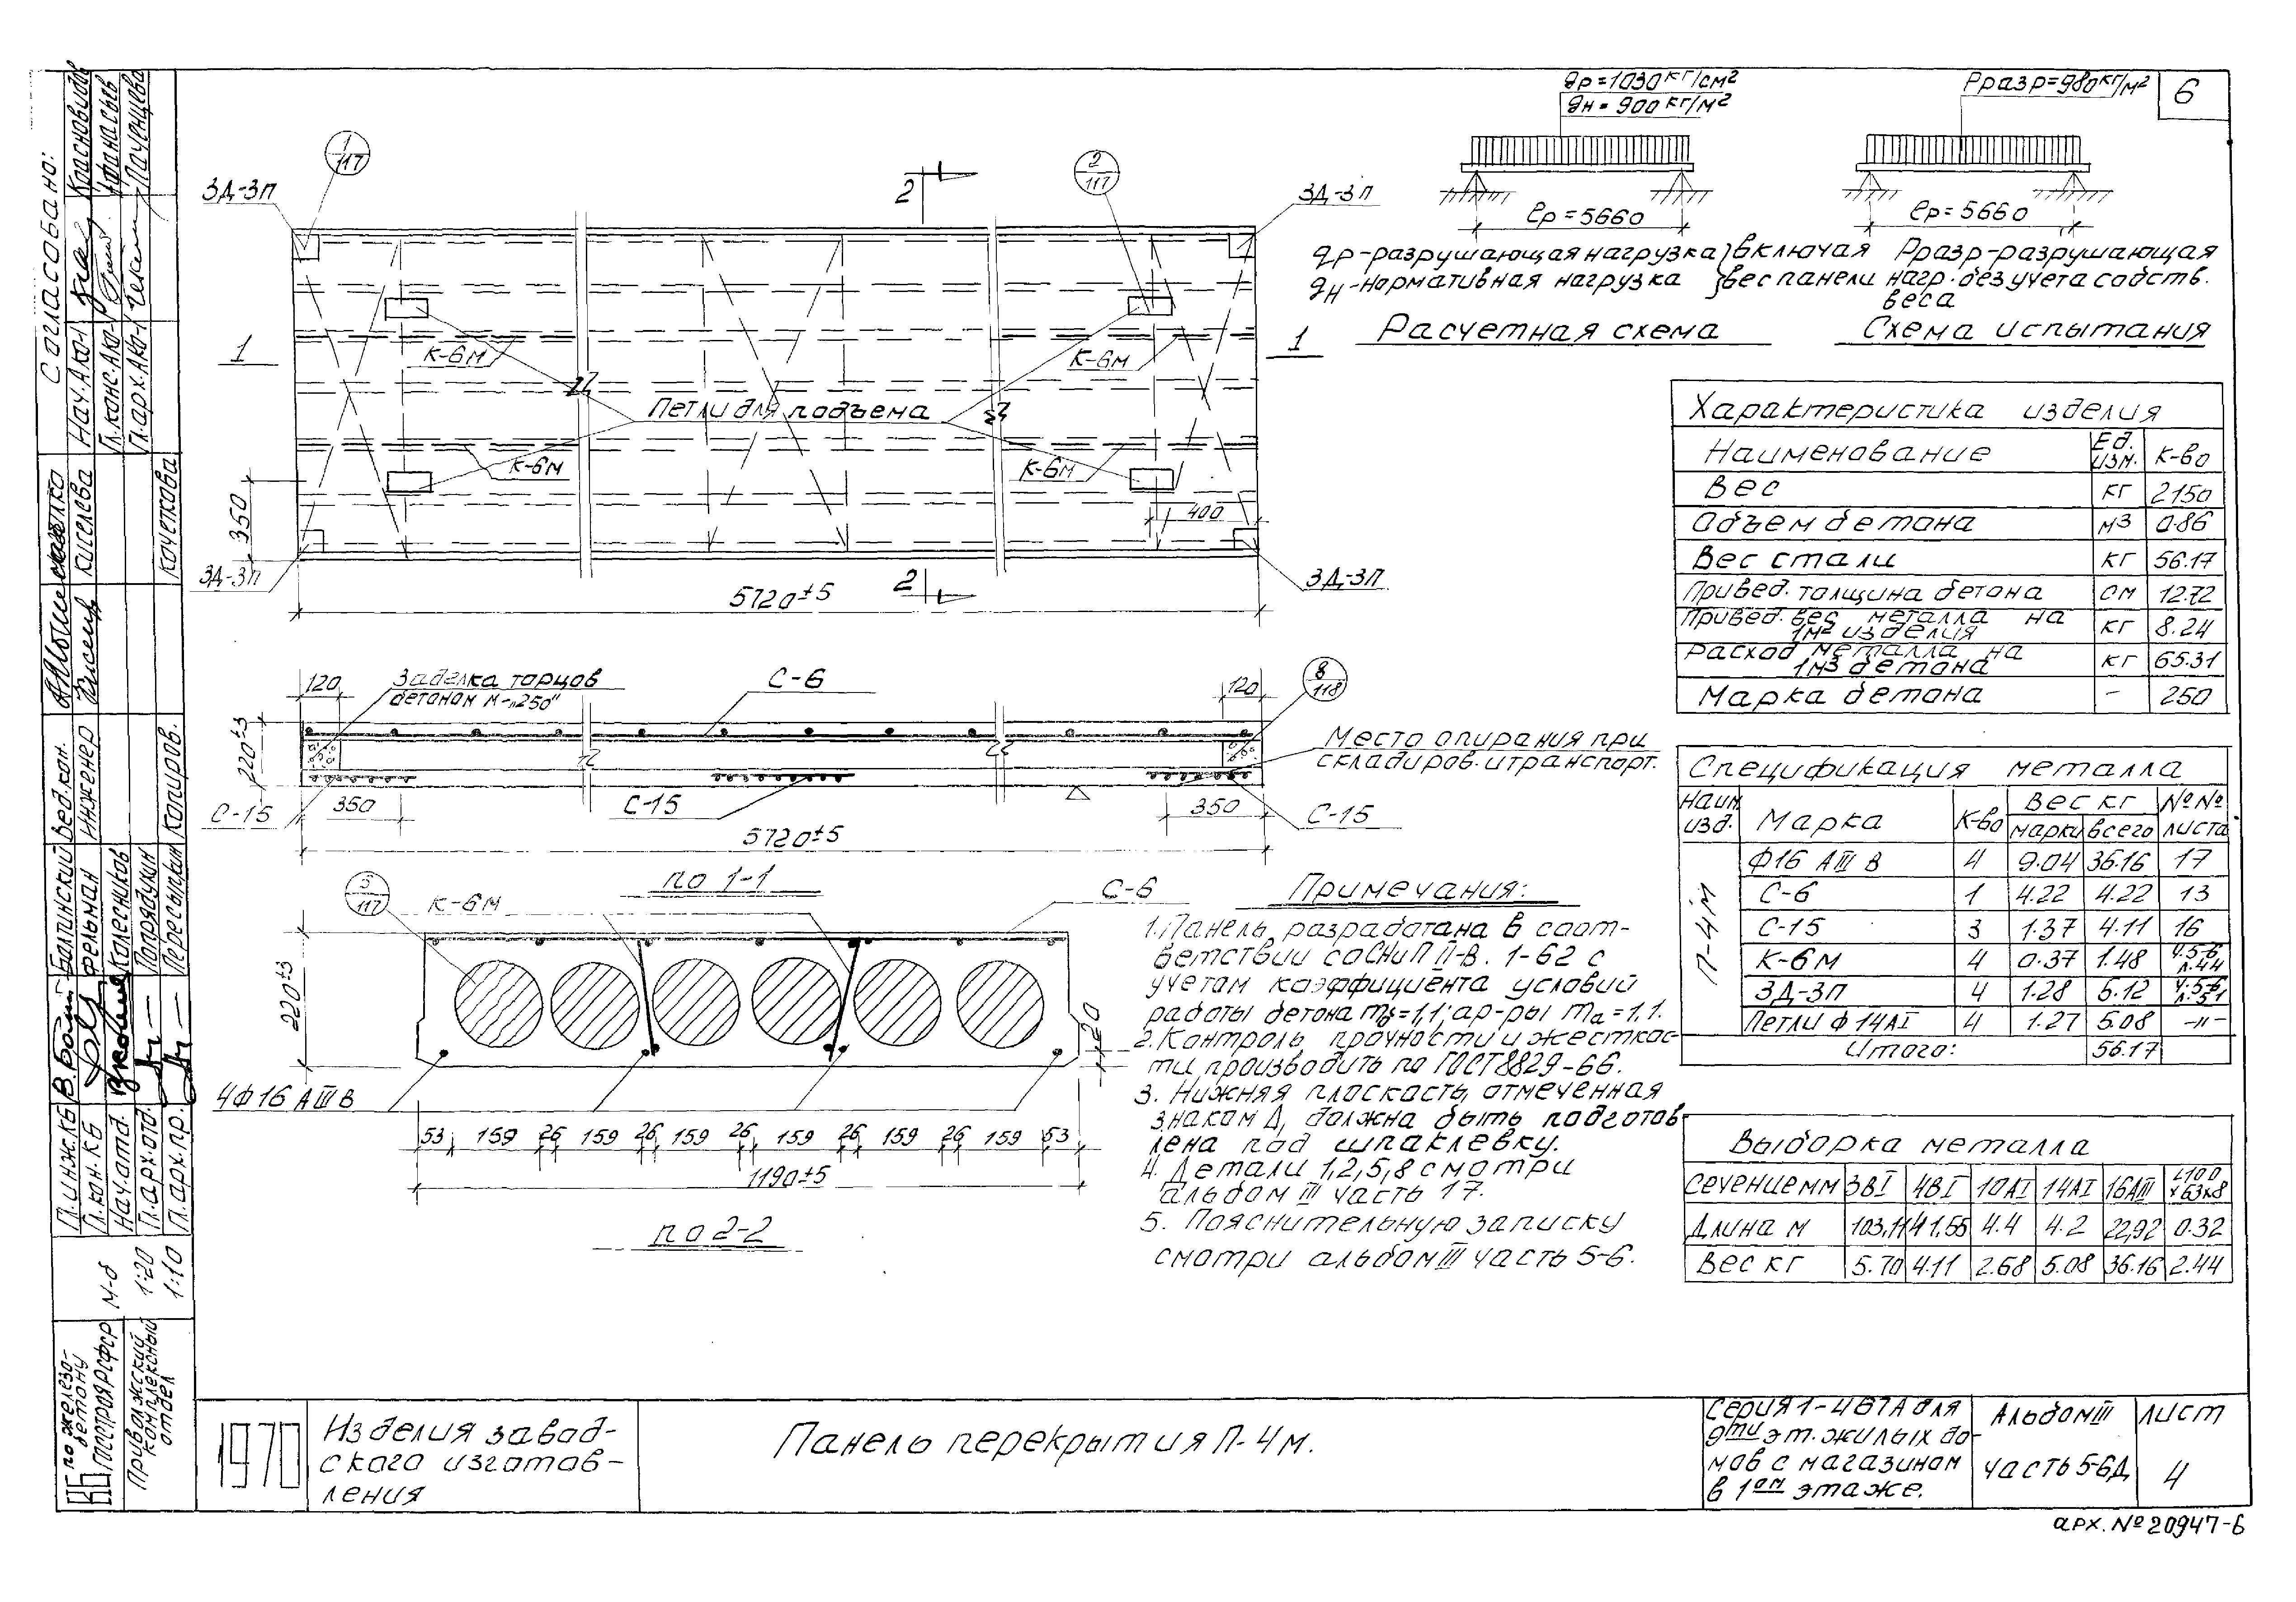 6
qр=1030 кг/см²
qн=900 кг/м²
Рразр=980 кг/м²
ℓр=5660
ℓр=5660
qр-разрушающая нагрузка } включая
qн-нормативная нагрузка } вес панели
Рразр-разрушающая
нагр. без учета собств.
веса
Расчетная схема
Схема испытания
1/117
2/117
ЗД-3п
ЗД-3п
2
1
1
К-6м
К-6м
Петли для подъема
К-6м
К-6м
350
400
ЗД-3п
ЗД-3п
2
5720±5
120
Заделка торцов
бетоном М-„250"
С-6
120
8/118
220±3
Место опирания при
складиров. и транспорт.
С-15
350
С-15
350
С-15
5720±5
по 1-1
5/117
К-6м
С-6
220±3
20
4Ф16 АIII В
53 159 26 159 26 159 26 159 26 159 26 159 53
1190±5
по 2-2
Примечания:
1. Панель разработана в соот-
ветствии со СНиП II-В. 1-62 с
учетом коэффициента условий
работы бетона mб=1,1; ар-ры ma=1,1.
2. Контроль прочности и жесткос-
ти производить по ГОСТ 8829-66.
3. Нижняя плоскость, отмеченная
знаком Δ, должна быть подготов
лена под шпаклевку.
4. Детали 1,2,5,8 смотри
альбом III часть 17.
5. Пояснительную записку
смотри альбом III часть 5-6.
Характеристика изделия
Наименование Ед. изм. К-во
Вес кг 2150
Объем бетона м3 0.86
Вес стали кг 56.17
Привед. толщина бетона см 12.72
Привед. вес металла на
1м² изделия кг 8.24
Расход металла на
1м3 бетона кг 65.31
Марка бетона - 250
Спецификация металла
Наим. изд. Марка К-во Вес кг №№ листа
марки всего
П-4м
Ф16 АIII В 4 9.04 36.16 17
С-6 1 4.22 4.22 13
С-15 3 1.37 4.11 16
К-6м 4 0.37 1.48 ч.5-6 л.44
ЗД-3п 4 1.28 5.12 ч.5-6 л.51
Петли Ф14АI 4 1.27 5.08 -"-
Итого: 56.17
Выборка металла
Сечение мм 3ВI 4ВI 10АI 14АI 16АIII L100×63×8
Длина м 103,11 41,55 4.4 4.2 22,92 0.32
Вес кг 5.70 4.11 2.68 5.08 36.16 2.44
Согласовано:
Нач. АКО-1 Красновидов
Гл. конс. АКО-1 Афанасьев
Гл. арх. АКО-1
Вед. кон.
Инженер Киселева
Копиров. Кочеткова
Гл. инж. КБ Болтинский
Гл. кон. КБ Фельман
Нач. отд. Колесников
Гл. арх. отд. Попрядухин
Гл. арх. пр. Пересыпкин
М-б 1:20
1:10
КБ по железо-
бетону
Госстроя РСФСР
Приволжский
комплексный
отдел
1970
Изделия завод-
ского изготов-
ления
Панель перекрытия П-4м.
Серия 1-467А для
9ти эт. жилых до-
мов с магазином
в 1ом этаже.
Альбом III
часть 5-6Д
Лист
4
арх. № 20947-6